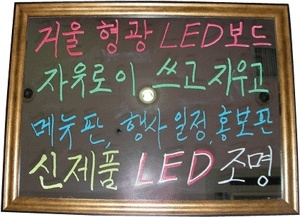 거울 형광 LED보드
자유로이 쓰고 지우고
메뉴판, 행사일정, 홍보판
신제품 LED 조명